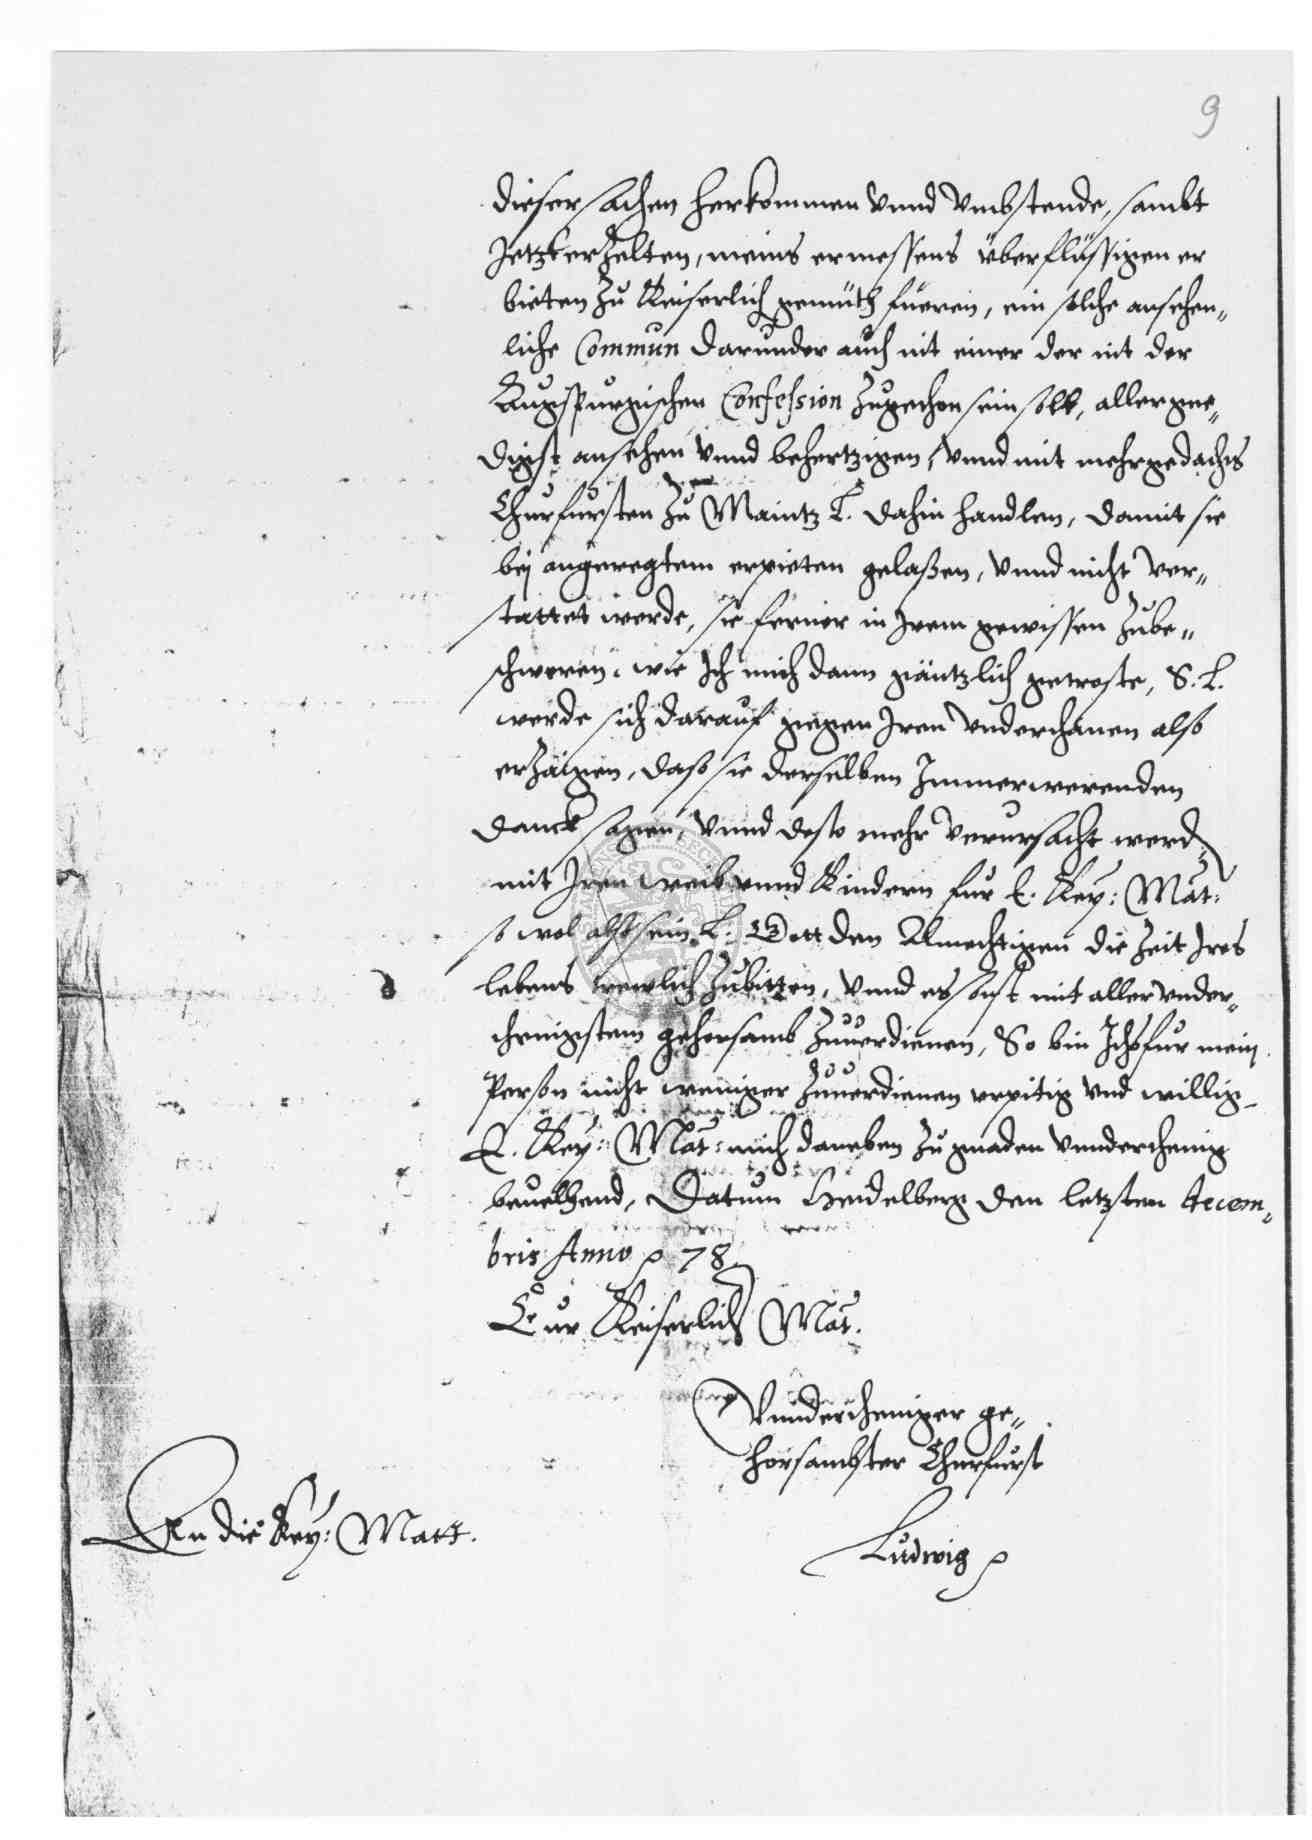 9
dieser sachen herkommen vnnd vmbstende, sambt
Jetzt erzelten, meins ermessens überflüssigen er
bieten zu Keiserlich gemüth fueren, ein solche ansehen„
liche Commun darunder auch nit einer der nit der
Augspurgischen Confession zugethon sein soll, allergne„
digst ansehen vnnd behertzigen, vnnd mit mehrgedachts
Churfursten zu Maintz L. dahin handlen, damit sie
bej angeregtem erpieten gelaßen, vnnd nicht ver„
stattet werde, sie ferner in Jrem gewissen zube„
schweren, wie Ich mich dann gäntzlich getroste, S. L.
werde sich darauf gegen Jren vnderthanen also
erzaigen, daß sie derselben Immerwerenden
danck sagen, vnnd desto mehr verursacht werd
mit Jren weib vnnd Kindern fur E. Key: Mat:
so wol alß sein L. Gott den Almechtigen die Zeit Jres
lebens trewlich zubitten, vnnd es sonst mit aller vnder„
thenigstem gehorsamb zuuerdienen, So bin Ichs fur mein
Person nicht weniger zuuerdienen vrpitig vnd willig
E. Key: Mat: mich daneben zu gnaden vnnderthenig
beuelhend, Datum Heidelberg den letzsten decem„
bris Anno p 78
Eur Keiserlich Mat.
Vnndertheniger ge„
horsambster Churfurst
An die Key: Matt.
Ludwig p